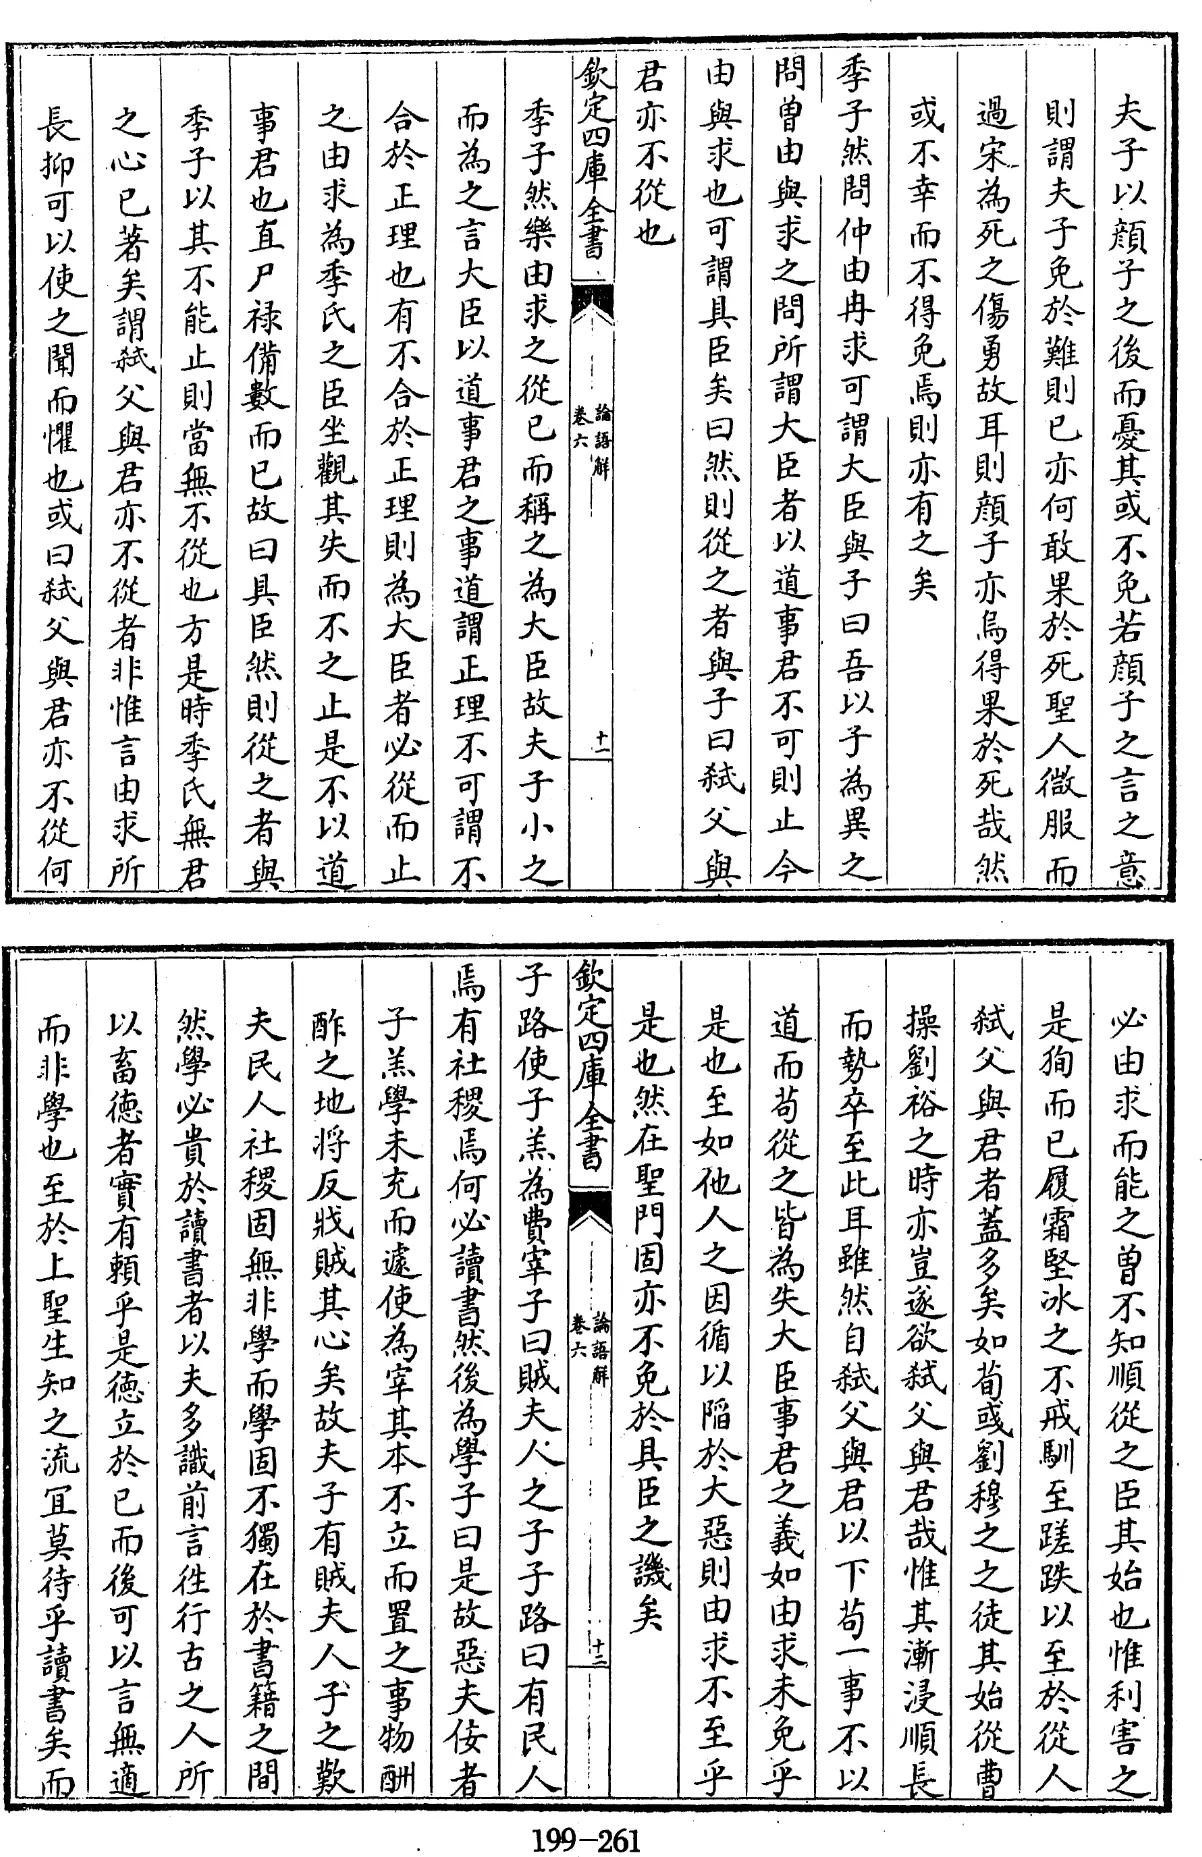 夫子以顔子之後而憂其或不免若顔子之言之意
則謂夫子免於難則已亦何敢果於死聖人微服而
過宋為死之傷勇故耳則顔子亦烏得果於死哉然
或不幸而不得免焉則亦有之矣
季子然問仲由冉求可謂大臣與子曰吾以子為異之
問曾由與求之問所謂大臣者以道事君不可則止今
由與求也可謂具臣矣曰然則從之者與子曰弑父與
君亦不從也
欽定四庫全書
論語解
卷六
十一
季子然樂由求之從已而稱之為大臣故夫子小之
而為之言大臣以道事君之事道謂正理不可謂不
合於正理也有不合於正理則為大臣者必從而止
之由求為季氏之臣坐觀其失而不之止是不以道
事君也直尸祿備數而已故曰具臣然則從之者與
季子以其不能止則當無不從也方是時季氏無君
之心已著矣謂弑父與君亦不從者非惟言由求所
長抑可以使之聞而懼也或曰弑父與君亦不從何
必由求而能之曾不知順從之臣其始也惟利害之
是狥而已履霜堅冰之不戒馴至蹉跌以至於從人
弑父與君者蓋多矣如荀彧劉穆之之徒其始從曹
操劉裕之時亦豈遂欲弑父與君哉惟其漸浸順長
而勢卒至此耳雖然自弑父與君以下苟一事不以
道而苟從之皆為失大臣事君之義如由求未免乎
是也至如他人之因循以陷於大惡則由求不至乎
是也然在聖門固亦不免於具臣之譏矣
欽定四庫全書
論語解
卷六
十二
子路使子羔為費宰子曰賊夫人之子子路曰有民人
焉有社稷焉何必讀書然後為學子曰是故惡夫佞者
子羔學未充而遽使為宰其本不立而置之事物酬
酢之地將反戕賊其心矣故夫子有賊夫人子之歎
夫民人社稷固無非學而學固不獨在於書籍之間
然學必貴於讀書者以夫多識前言往行古之人所
以畜德者實有賴乎是德立於已而後可以言無適
而非學也至於上聖生知之流宜莫待乎讀書矣而
199-261